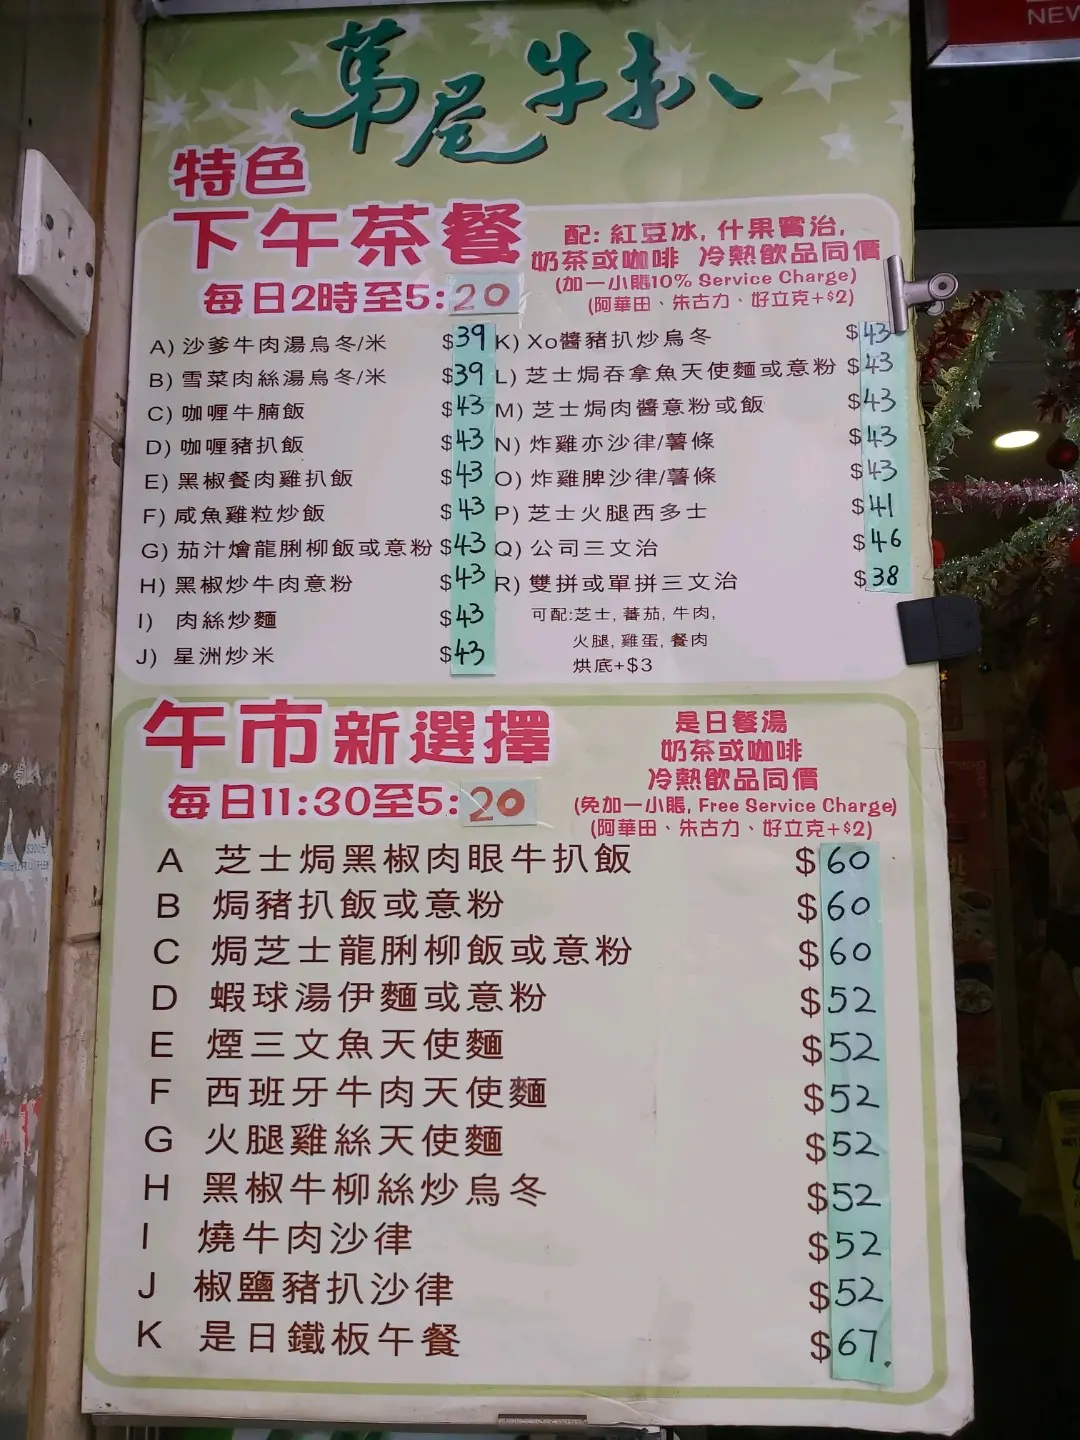 NEW
第尾牛扒
特色
下午茶餐
每日2時至5:20
配: 紅豆冰, 什果賓治,
奶茶或咖啡 冷熱飲品同價
(加一小賬10% Service Charge)
(阿華田、朱古力、好立克+$2)
A) 沙爹牛肉湯烏冬/米 $39
B) 雪菜肉絲湯烏冬/米 $39
C) 咖喱牛腩飯 $43
D) 咖喱豬扒飯 $43
E) 黑椒餐肉雞扒飯 $43
F) 咸魚雞粒炒飯 $43
G) 茄汁燴龍脷柳飯或意粉 $43
H) 黑椒炒牛肉意粉 $43
I) 肉絲炒麵 $43
J) 星洲炒米 $43
K) Xo醬豬扒炒烏冬 $43
L) 芝士焗吞拿魚天使麵或意粉 $43
M) 芝士焗肉醬意粉或飯 $43
N) 炸雞亦沙律/薯條 $43
O) 炸雞脾沙律/薯條 $43
P) 芝士火腿西多士 $41
Q) 公司三文治 $46
R) 雙拼或單拼三文治 $38
可配:芝士, 蕃茄, 牛肉,
火腿, 雞蛋, 餐肉
烘底+$3
午市新選擇
每日11:30至5:20
是日餐湯
奶茶或咖啡
冷熱飲品同價
(免加一小賬, Free Service Charge)
(阿華田、朱古力、好立克+$2)
A 芝士焗黑椒肉眼牛扒飯 $60
B 焗豬扒飯或意粉 $60
C 焗芝士龍脷柳飯或意粉 $60
D 蝦球湯伊麵或意粉 $52
E 煙三文魚天使麵 $52
F 西班牙牛肉天使麵 $52
G 火腿雞絲天使麵 $52
H 黑椒牛柳絲炒烏冬 $52
I 燒牛肉沙律 $52
J 椒鹽豬扒沙律 $52
K 是日鐵板午餐 $67.